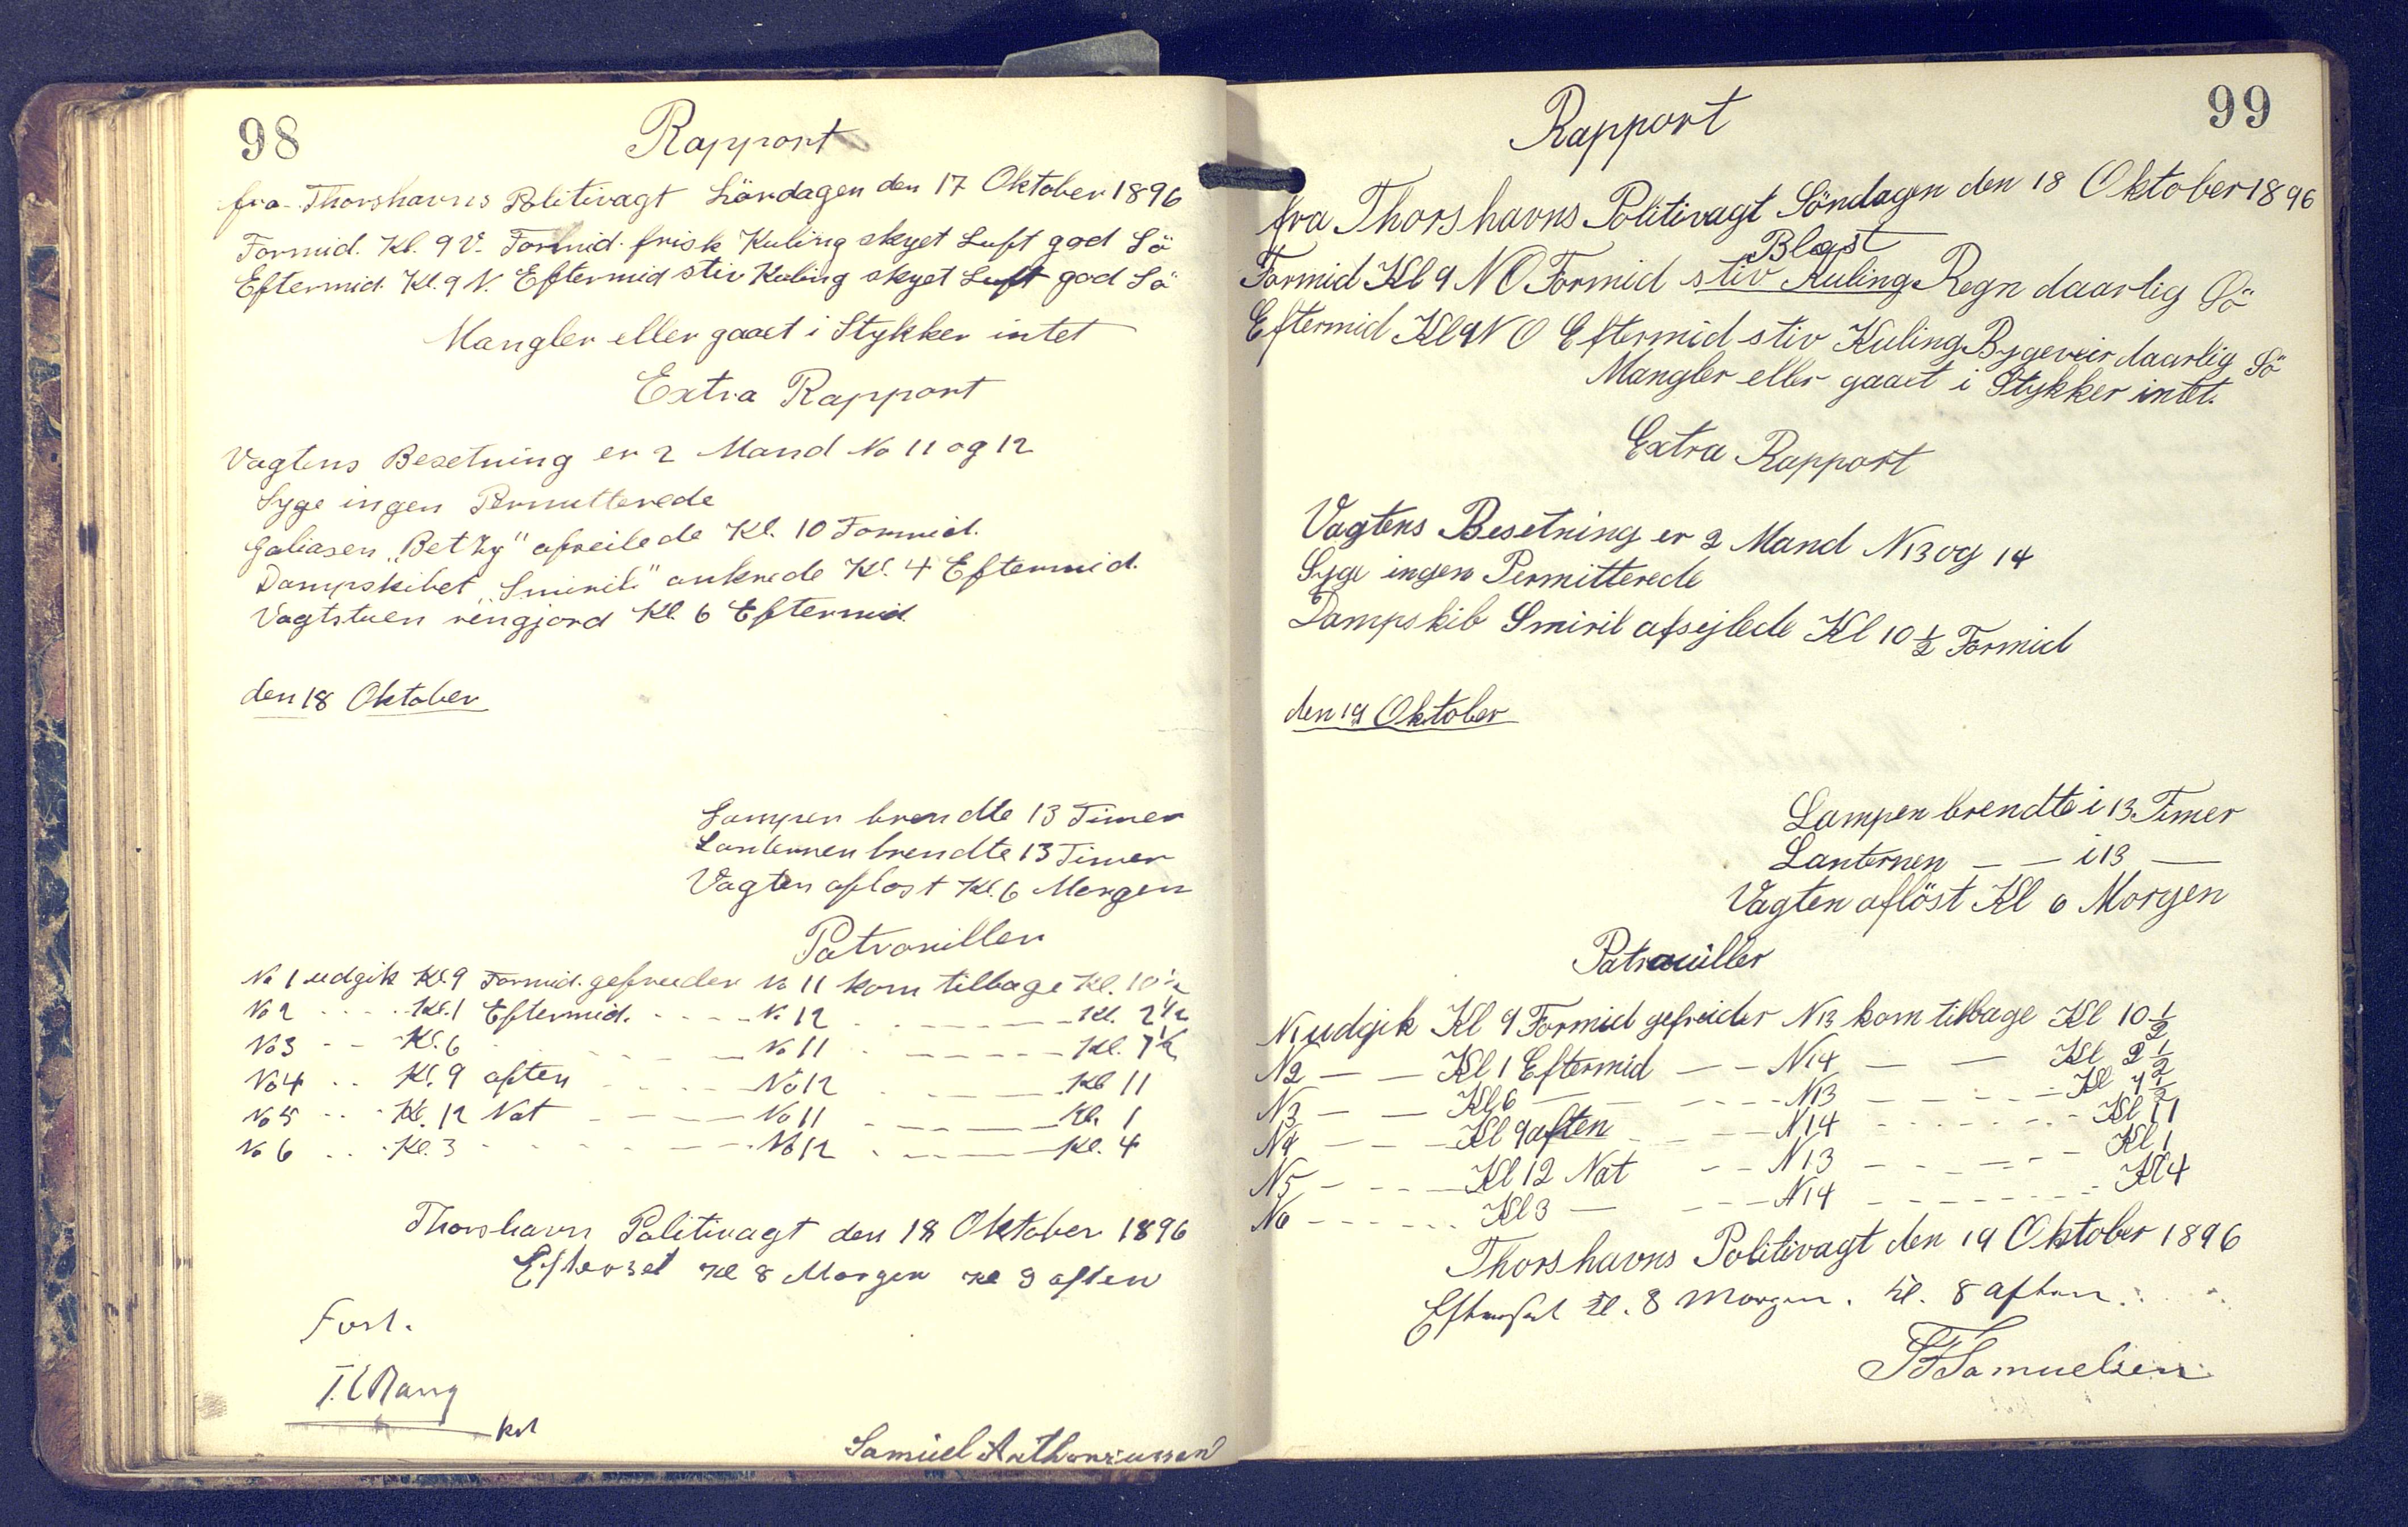 98
Rapport
fra Thorshavns Politivagt Lördagen den 17 Oktober 1896
Formid. Kl. 9 V. Formid. frisk Kuling skyet Luft god Sö
Eftermid. Kl. 9 N. Eftermid stiv Kuling skyet Luft god Sö
Mangler eller gaaet i Stykker intet
Extra Rapport
Vagtens Besetning er 2 Mand No 11 og 12
Syge ingen Permitterede
Galiasen „Betzy" afseilede Kl. 10 Formid.
Dampskibet „Smiril" ankrede Kl. 4 Eftermid.
Vagtstuen rengjord Kl. 6 Eftermid.
den 18 Oktober
Lampen brendte 13 Timer
Lanternen brendte 13 Timer
Vagten aflost Kl. 6 Morgen
Patrouillen
No 1 udgik Kl. 9 Formid. gefreider No 11 kom tilbage Kl. 10½
No 2 - - - - Kl. 1 Eftermid. - - - - N. 12 - - - - - Kl. 2½
No 3 - - Kl. 6 - - - - - No 11 - - - - - Kl. 7½
No 4 - - Kl. 9 aften - - - - No 12 - - - - Kl 11
No 5 - - - Kl. 12 Nat - - - - No 11 - - - - Kl. 1
No 6 - - - Kl. 3 - - - - - No 12 - - - - Kl. 4
Thorshavn Politivagt den 18 Oktober 1896
Efterset Kl 8 Morgen Kl 9 aften
Samuel Anthoniussen
99
Rapport
fra Thorshavns Politivagt Söndagen den 18 Oktober 1896
Blæst
Formid Kl 9 NO Formid stiv Kuling Regn daarlig Sö
Eftermid Kl 9 NO Eftermid stiv Kuling Bygeveir daarlig Sö
Mangler eller gaaet i Stykker intet.
Extra Rapport
Vagtens Besetning er 2 Mand N 13 og 14
Syge ingen Permitterede
Dampskib Smiril afsejlede Kl 10½ Formid
den 19 Oktober
Lampen brendte i 13 Timer
Lanternen — — i 13 —
Vagten aflöst Kl 6 Morgen
Patrouiller
N 1 udgik Kl 9 Formid gefreider N 13 kom tilbage Kl 10½
N 2 — — Kl 1 Eftermid — — N 14 — — Kl 2½
N 3 — — Kl 6 — - - - N 13 - - - - Kl 7½
N 4 — — Kl 9 aften - - - N 14 - - - - Kl 11
N 5 - - - - Kl 12 Nat - - N 13 - - - - Kl 1
N 6 - - - - Kl 3 — - - - N 14 - - - - Kl 4
Thorshavns Politivagt den 19 Oktober 1896
Efterset Kl. 8 Morgen. Kl. 8 aften.
Samuelsen